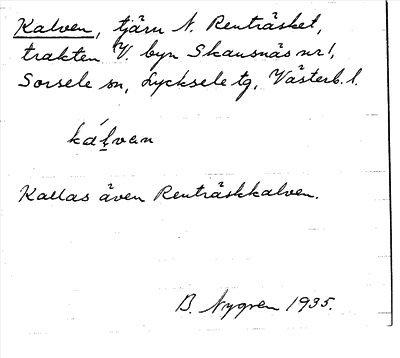 Kalven, tjärn N. Renträsket,
trakten V. byn Skansnäs nr 1,
Sorsele sn, Lycksele tg, Västerb. l.
kálvan
Kallas även Renträskkalven.
B. Nygren 1935.